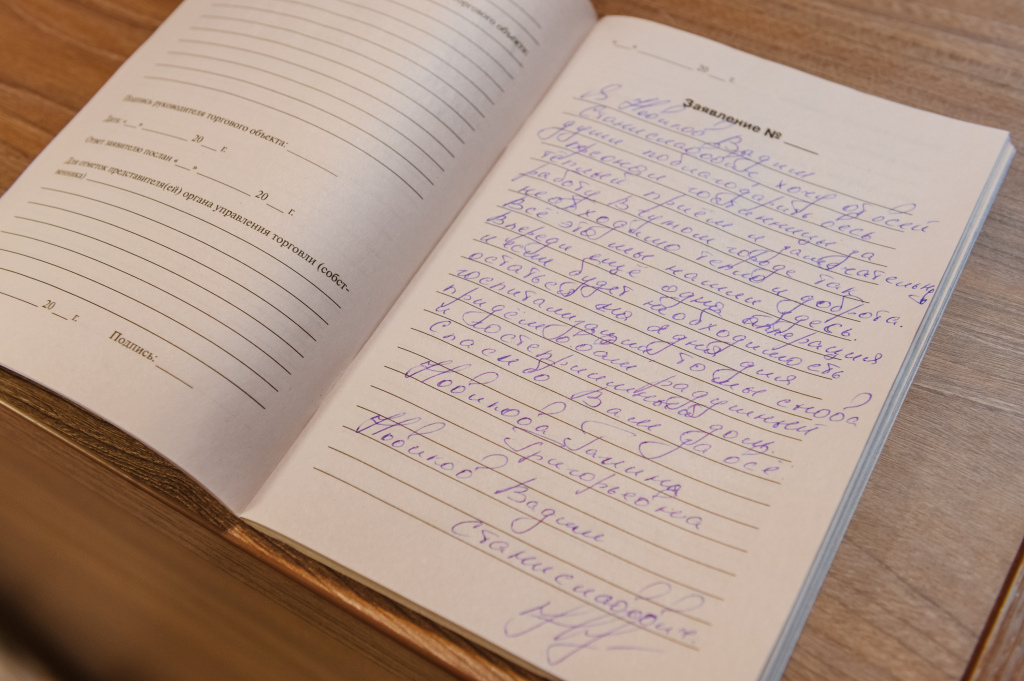 торгового объекта:
Подпись руководителя торгового объекта:
Дата «__»________ 20__ г.
Ответ заявителю послан «__»________ 20__ г.
Для отметок представителя(ей) органа управления торговли (собст-
венника)
20__ г.
Подпись:
«__»________ 20__ г.
Заявление №
Я Новиков Вадим
Станиславович хочу от всей
души поблагодарить весь
персонал гостиницы за
тёплый приём и замечательную
работу. В чужом городе так
необходимо тепло и доброта.
Всё это мы нашли здесь.
Впереди ещё одна операция
и если будет необходимость
остаться на 2 дня для
госпитализации, то мы снова
придём в Ваш радушный
и гостеприимный дом.
Спасибо Вам за все
Новикова Галина
Григорьевна
Новиков Вадим
Станиславович.